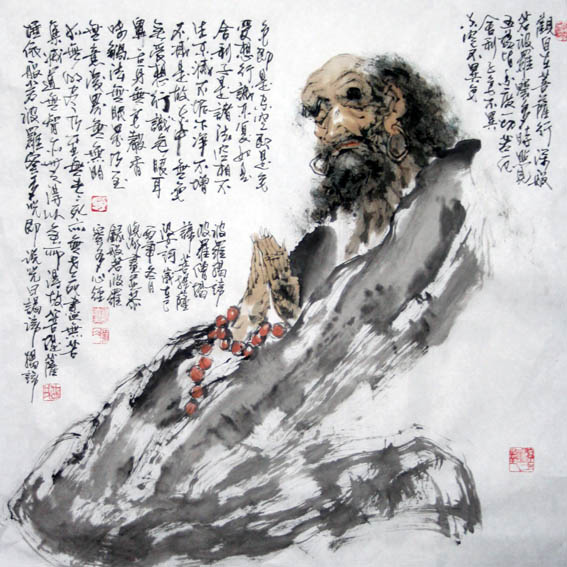 觀自在菩薩行深般
若波羅蜜多時照見
五蘊皆空度一切苦厄
舍利子色不異
空空不異色
色即是空空即是色
受想行識亦復如是
舍利子是諸法空相不
生不滅不垢不淨不增
不減是故空中無色
無受想行識無眼耳
鼻舌身意無色聲香
味觸法無眼界乃至
無意識界無無明
亦無乃至無老死亦無老死盡無苦
集滅道無智亦無得以無所得故菩提薩
依般若波羅蜜多咒即說咒曰揭諦揭諦
波羅揭諦
波羅僧揭
諦菩提薩
婆訶
月
畫並恭
錄般若波羅
蜜多心經